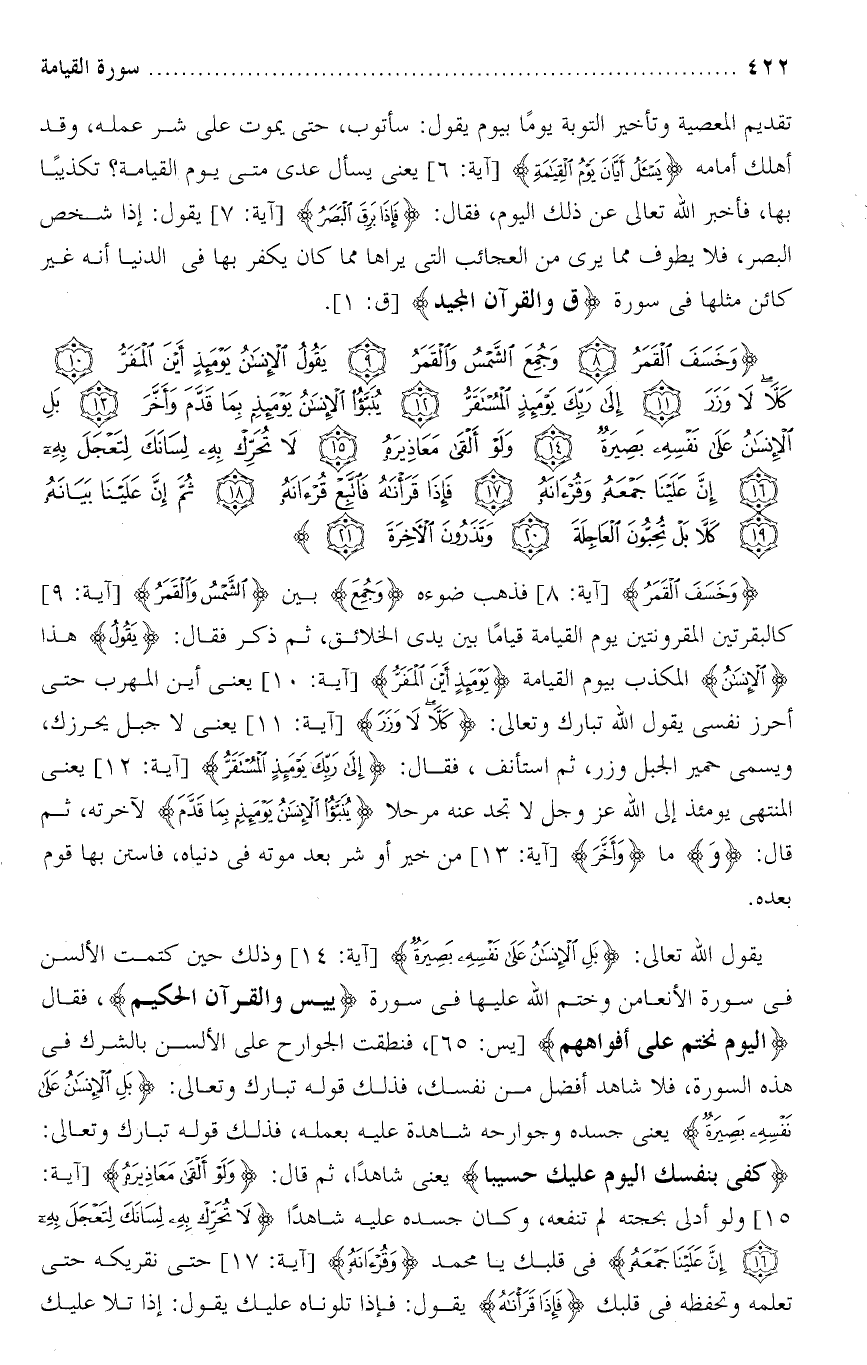 ٤٢٢ ........................................................................ سورة القيامة
تقديم المعصية وتأخير التوبة يومًا بيوم يقول: سأتوب، حتى يموت على شر عمله، وقد
أهلك أمامه ﴿يَسْئَلُ أَيَّانَ يَوْمُ ٱلْقِيَٰمَةِ﴾ [آية: ٦] يعنى يسأل عدى متى يوم القيامة؟ تكذيبًا
بها، فأخبر الله تعالى عن ذلك اليوم، فقال: ﴿فَإِذَا بَرِقَ ٱلْبَصَرُ﴾ [آية: ٧] يقول: إذا شخص
البصر، فلا يطوف مما يرى من العجائب التى يراها مما كان يكفر بها فى الدنيا أنه غير
كائن مثلها فى سورة ﴿ق والقرآن المجيد﴾ [ق: ١].
﴿وَخَسَفَ ٱلْقَمَرُ ٨ وَجُمِعَ ٱلشَّمْسُ وَٱلْقَمَرُ ٩ يَقُولُ ٱلْإِنسَٰنُ يَوْمَئِذٍ أَيْنَ ٱلْمَفَرُّ ١٠
كَلَّا لَا وَزَرَ ١١ إِلَىٰ رَبِّكَ يَوْمَئِذٍ ٱلْمُسْتَقَرُّ ١٢ يُنَبَّؤُا ٱلْإِنسَٰنُ يَوْمَئِذٍۭ بِمَا قَدَّمَ وَأَخَّرَ ١٣ بَلِ
ٱلْإِنسَٰنُ عَلَىٰ نَفْسِهِۦ بَصِيرَةٌ ١٤ وَلَوْ أَلْقَىٰ مَعَاذِيرَهُۥ ١٥ لَا تُحَرِّكْ بِهِۦ لِسَانَكَ لِتَعْجَلَ بِهِۦٓ
١٦ إِنَّ عَلَيْنَا جَمْعَهُۥ وَقُرْءَانَهُۥ ١٧ فَإِذَا قَرَأْنَٰهُ فَٱتَّبِعْ قُرْءَانَهُۥ ١٨ ثُمَّ إِنَّ عَلَيْنَا بَيَانَهُۥ
١٩ كَلَّا بَلْ تُحِبُّونَ ٱلْعَاجِلَةَ ٢٠ وَتَذَرُونَ ٱلْآخِرَةَ ٢١ ﴾
﴿وَخَسَفَ ٱلْقَمَرُ﴾ [آية: ٨] فذهب ضوءه ﴿وَجُمِعَ﴾ بين ﴿ٱلشَّمْسُ وَٱلْقَمَرُ﴾ [آية: ٩]
كالبقرتين المقرونتين يوم القيامة قيامًا بين يدى الخلائق، ثم ذكر فقال: ﴿يَقُولُ﴾ هذا
﴿ٱلْإِنسَٰنُ﴾ المكذب بيوم القيامة ﴿يَوْمَئِذٍ أَيْنَ ٱلْمَفَرُّ﴾ [آية: ١٠] يعنى أين المهرب حتى
أحرز نفسى يقول الله تبارك وتعالى: ﴿كَلَّا لَا وَزَرَ﴾ [آية: ١١] يعنى لا جبل يحرزك،
ويسمى حمير الجبل وزر، ثم استأنف ، فقال: ﴿إِلَىٰ رَبِّكَ يَوْمَئِذٍ ٱلْمُسْتَقَرُّ﴾ [آية: ١٢] يعنى
المنتهى يومئذ إلى الله عز وجل لا تجد عنه مرحلا ﴿يُنَبَّؤُا ٱلْإِنسَٰنُ يَوْمَئِذٍۭ بِمَا قَدَّمَ﴾ لآخرته، ثم
قال: ﴿وَ﴾ ما ﴿وَأَخَّرَ﴾ [آية: ١٣] من خير أو شر بعد موته فى دنياه، فاستن بها قوم
بعده.
يقول الله تعالى: ﴿بَلِ ٱلْإِنسَٰنُ عَلَىٰ نَفْسِهِۦ بَصِيرَةٌ﴾ [آية: ١٤] وذلك حين كتمت الألسن
فى سورة الأنعامن وختم الله عليها فى سورة ﴿ييس والقرآن الحكيم﴾، فقال
﴿اليوم نختم على أفواههم﴾ [يس: ٦٥]، فنطقت الجوارح على الألسن بالشرك فى
هذه السورة، فلا شاهد أفضل من نفسك، فذلك قوله تبارك وتعالى: ﴿بَلِ ٱلْإِنسَٰنُ عَلَىٰ
نَفْسِهِۦ بَصِيرَةٌ﴾ يعنى جسده وجوارحه شاهدة عليه بعمله، فذلك قوله تبارك وتعالى:
﴿كفى بنفسك اليوم عليك حسيبا﴾ يعنى شاهدًا، ثم قال: ﴿وَلَوْ أَلْقَىٰ مَعَاذِيرَهُۥ﴾ [آية:
١٥] ولو أدلى بحجته لم تنفعه، وكان جسده عليه شاهدًا ﴿لَا تُحَرِّكْ بِهِۦ لِسَانَكَ لِتَعْجَلَ بِهِۦٓ
١٦ إِنَّ عَلَيْنَا جَمْعَهُۥ﴾ فى قلبك يا محمد ﴿وَقُرْءَانَهُۥ﴾ [آية: ١٧] حتى نقريكه حتى
تعلمه وتحفظه فى قلبك ﴿فَإِذَا قَرَأْنَٰهُ﴾ يقول: فإذا تلوناه عليك يقول: إذا تلا عليك